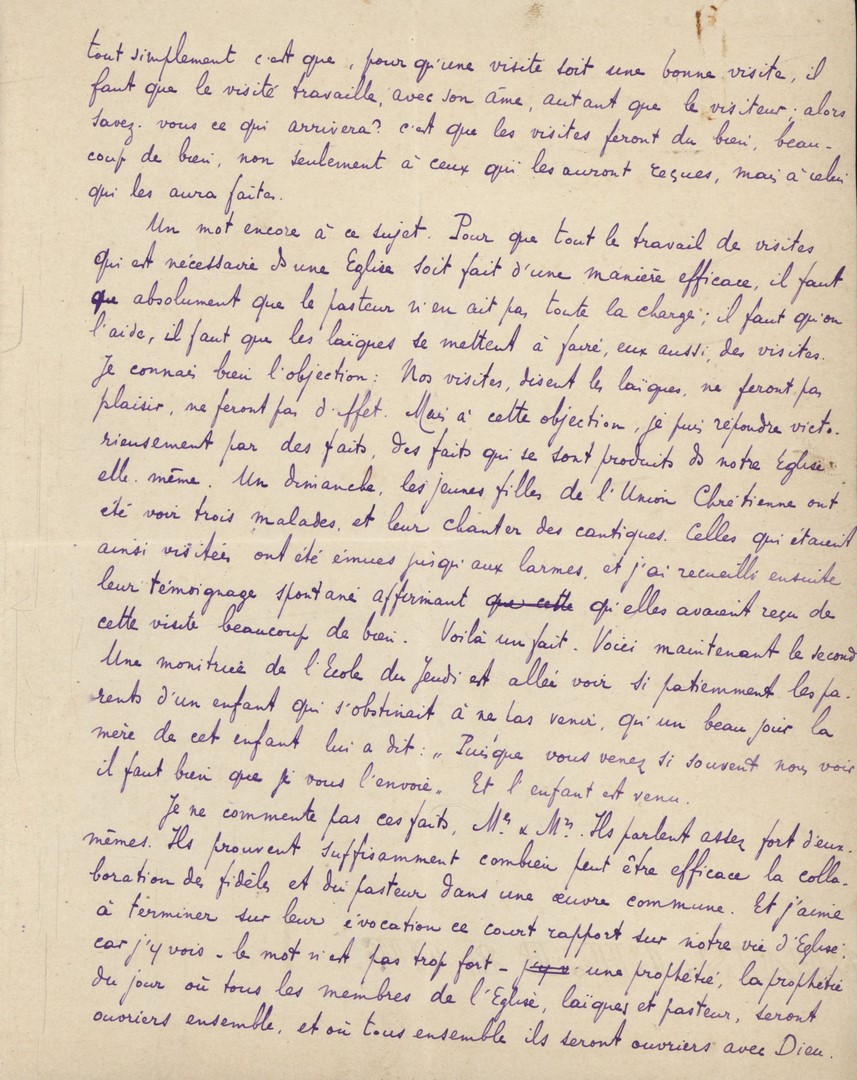 tout simplement c'est que, pour qu'une visite soit une bonne visite, il
faut que le visité travaille, avec son âme, autant que le visiteur ; alors
savez-vous ce qui arrivera ? c'est que les visites feront du bien, beau-
coup de bien, non seulement à ceux qui les auront reçues, mais à celui
qui les aura faites.
Un mot encore à ce sujet. Pour que tout le travail de visites
qui est nécessaire ds une Eglise soit fait d'une manière efficace, il faut
qu absolument que le pasteur n'en ait pas toute la charge ; il faut qu'on
l'aide, il faut que les laïques se mettent à faire, eux aussi, des visites.
Je connais bien l'objection : Nos visites, disent les laïques, ne feront pas
plaisir, ne feront pas d'effet. Mais à cette objection, je puis répondre victo-
rieusement par des faits, des faits qui se sont produits ds notre Eglise
elle-même. Un dimanche, les jeunes filles de l'Union Chrétienne ont
été voir trois malades, et leur chanter des cantiques. Celles qui étaient
ainsi visitées ont été émues jusqu'aux larmes, et j'ai recueilli ensuite
leur témoignage spontané affirmant que cette qu'elles avaient reçu de
cette visite beaucoup de bien. Voilà un fait. Voici maintenant le second
Une monitrice de l'Ecole du Jeudi est allée voir si patiemment les pa-
rents d'un enfant qui s'obstinait à ne pas venir, qu'un beau jour la
mère de cet enfant lui a dit : „ Puisque vous venez si souvent nous voir
il faut bien que je vous l'envoie „ Et l'enfant est venu.
Je ne commente pas ces faits, Mrs & Mrs. Ils parlent assez fort d'eux-
mêmes. Ils prouvent suffisamment combien peut être efficace la colla-
boration des fidèles et du pasteur dans une œuvre commune. Et j'aime
à terminer sur leur évocation ce court rapport sur notre vie d'Eglise ;
car j'y vois - le mot n'est pas trop fort - j'y v une prophétie, la prophétie
du jour où tous les membres de l'Eglise, laïques et pasteur, seront
ouvriers ensemble, et où tous ensemble ils seront ouvriers avec Dieu.